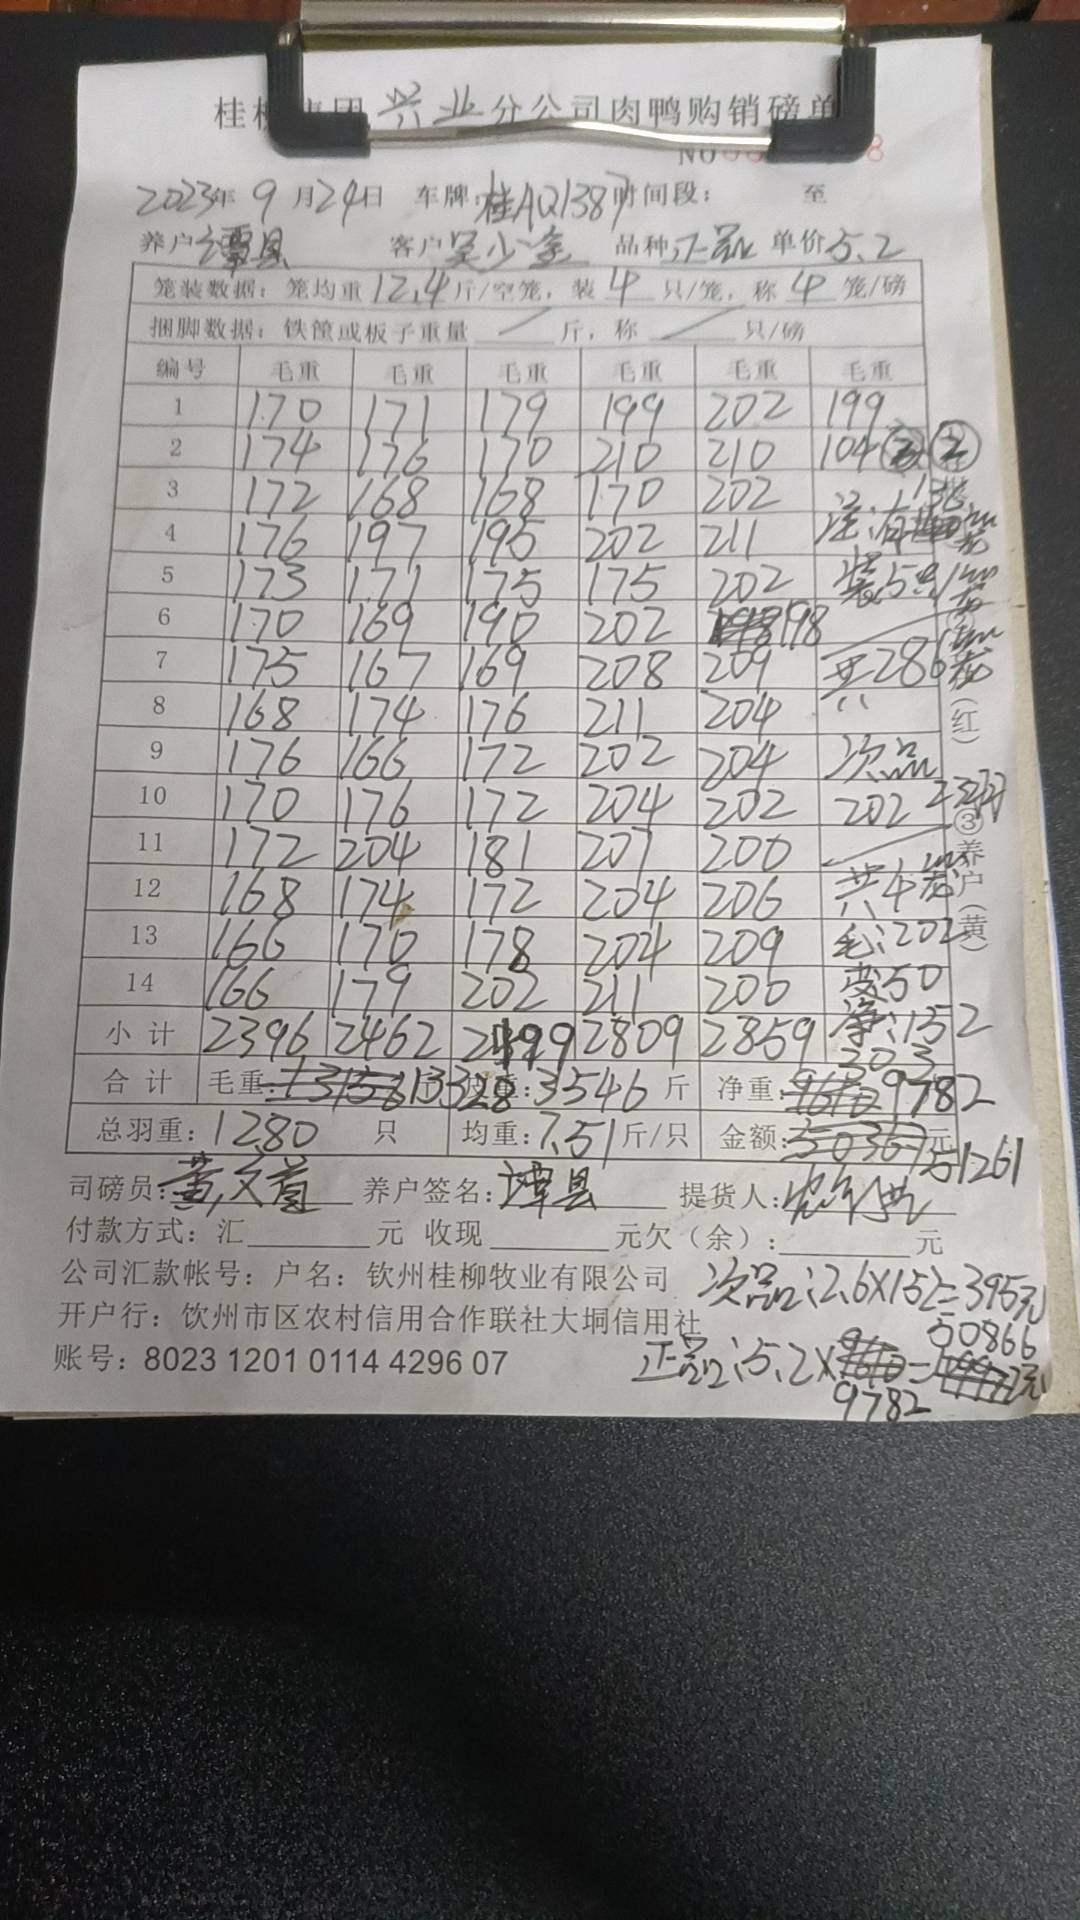 桂 集团 兴业 分公司肉鸭购销磅单
No 8
2023年 9 月 24日 车牌: 桂AQ1387 时间段: 至
养户 谭县 客户 吴少金 品种 正品 单价 5.2
笼装数据: 笼均重 12.4 斤/空笼, 装 4 只/笼, 称 4 笼/磅
捆脚数据: 铁筐或板子重量 / 斤, 称 / 只/磅
编号 毛重 毛重 毛重 毛重 毛重 毛重
1 170 171 179 199 202 199
2 174 176 170 210 210 104 ②
3 172 168 168 170 202
4 176 197 195 202 211 注:有138笼
5 173 171 175 175 202 装5只1笼
6 170 169 190 202 198
7 175 167 169 208 209 共286笼
8 168 174 176 211 204 (红)
9 176 166 172 202 204 次品
10 170 176 172 204 202 202
11 172 204 181 207 200 ③养户(黄)
12 168 174 172 204 206 共4笼
13 166 170 178 204 209 毛:202
14 166 179 202 211 200 皮:50
小 计 2396 2462 2499 2809 2859 净:152
303
合 计 毛重: 13328 皮重: 3546 斤 净重: 9782
总羽重: 1280 只 均重: 7.51 斤/只 金额: 51261 元
司磅员: 黄文首 养户签名: 谭县 提货人:
付款方式: 汇 元 收现 元欠(余): 元
公司汇款帐号: 户名: 钦州桂柳牧业有限公司
次品:2.6×152=395元
开户行: 饮州市区农村信用合作联社大垌信用社
50866
账号: 8023 1201 0114 4296 07
正品:5.2× = 元
9782